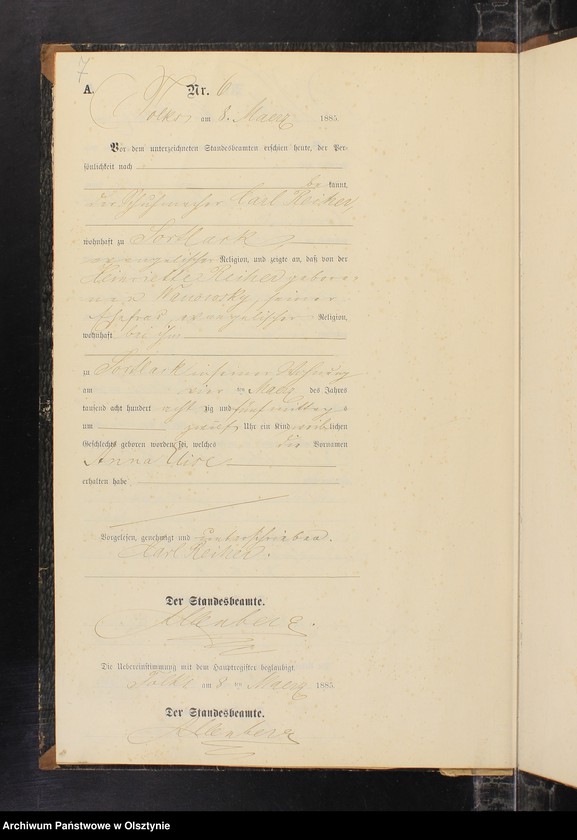 7
A.
Nr. 6
Tolks am 8. Maerz 1885.
Vor dem unterzeichneten Standesbeamten erschien heute, der Per-
sönlichkeit nach
be kannt,
der Schuhmacher Carl Reiher,
wohnhaft zu Sortlack
evangelischer Religion, und zeigte an, daß von der
Henriette Reiher gebore-
nen Kanowsky, seiner
Ehefrau evangelischer Religion,
wohnhaft bei ihm
zu Sortlack in seiner Wohnung
am vier ten Maerz des Jahres
tausend acht hundert acht zig und fünf mittags
um zwölf Uhr ein Kind weiblichen
Geschlechts geboren worden sei, welches die Vornamen
Anna Elise
erhalten habe
Vorgelesen, genehmigt und unterschrieben.
Carl Reiher.
Der Standesbeamte.
Die Uebereinstimmung mit dem Hauptregister beglaubigt.
Tolks am 8 ten Maerz 1885.
Der Standesbeamte.
Archiwum Państwowe w Olsztynie